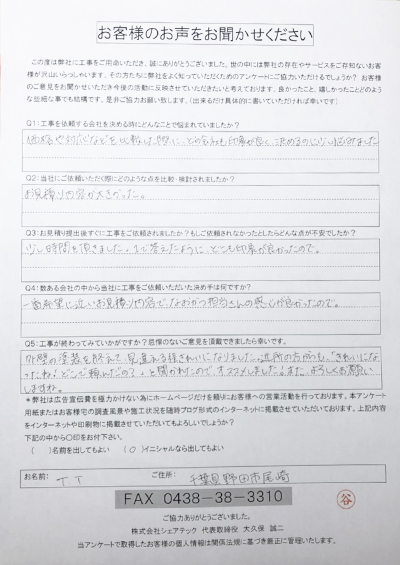 お客様のお声をお聞かせください
この度は弊社に工事をご用命いただき、誠にありがとうございました。世の中には弊社の存在やサービスをご存知ないお客
様が沢山いらっしゃいます。その方たちに弊社をよく知っていただくためのアンケートにご協力いただけるでしょうか？ お客様
のご意見をお聞かせいただき今後の活動に反映させていきたいと考えております。良かったこと、嬉しかったことどのよう
な些細な事でも結構です。是非ご協力お願い致します。(出来るだけ具体的に書いていただければ幸いです)
Q1:工事を依頼する会社を決める時どんなことで悩まれていましたか？
価格や対応などを比較した際に、どの会社も印象が良く、決めるのに少し悩みました
Q2:当社にご依頼いただく際にどのような点を比較・検討されましたか？
お見積り内容が大きかった。
Q3:お見積り提出後すぐに工事をご依頼されましたか？もしご依頼されなかったとしたらどんな点が不安でしたか？
少し時間を頂きました。1で答えたように、どこも印象が良かったので。
Q4:数ある会社の中から当社に工事をご依頼いただいた決め手は何ですか？
一番希望に近いお見積り内容で、なおかつ担当さんの感じが良かったので。
Q5:工事が終わってみていかがですか？忌憚のないご意見を頂戴できましたら幸いです。
外壁の塗装を終えて、見違える様きれいになりました。近所の方からも、「きれいにな
ったわね！どこで頼んだの？」と聞かれたので、オススメしました。また、よろしくお願い
しますね。
＊弊社は広告宣伝費を極力かけない為にホームページだけを頼りにお客様への営業活動を行っております。本アンケート
用紙またはお客様宅の調査風景や施工状況を随時ブログ形式のインターネットに掲載させていただいております。上記内容
をインターネットや印刷物に掲載させていただいてもよろしいでしょうか？
下記の中から〇印をお付下さい。
( )名前を出してもよい (○)イニシャルなら出してもよい
お名前: T T ご住所: 千葉県野田市尾崎
FAX 0438-38-3310
谷
ご協力ありがとうございました。
株式会社シェアテック 代表取締役 大久保 誠二
当アンケートで取得したお客様の個人情報は関係法規に基づき厳正に管理いたします。